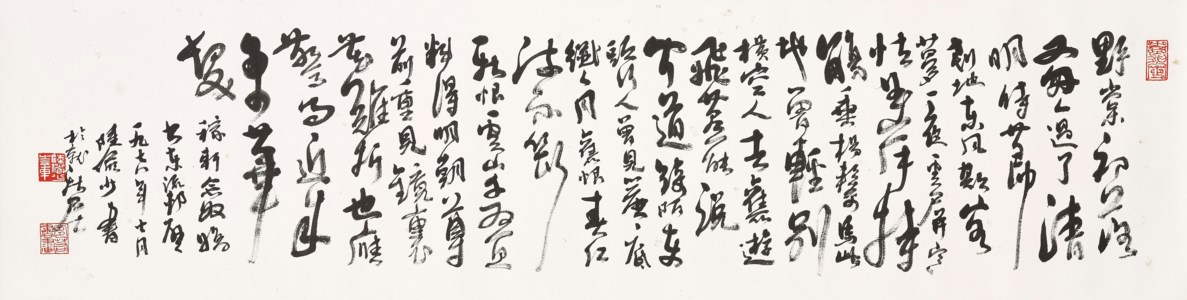 野棠初落
又匆匆過了清
明時節
剗地東風欺客
夢一夜雲屏寒
怯曲岸持
觴垂楊繫馬此
地曾輕別
橫空人去舊遊
飛燕能說
聞道綺陌東
頭行人曾見簾底
纖纖月舊恨春江
流不斷
新恨雲山千疊
料得明朝尊
前重見鏡裏
花難折也應
驚問近來
多少華
髮
稼軒念奴嬌
書東流村壁
一九七年七月
陸儼少書
於